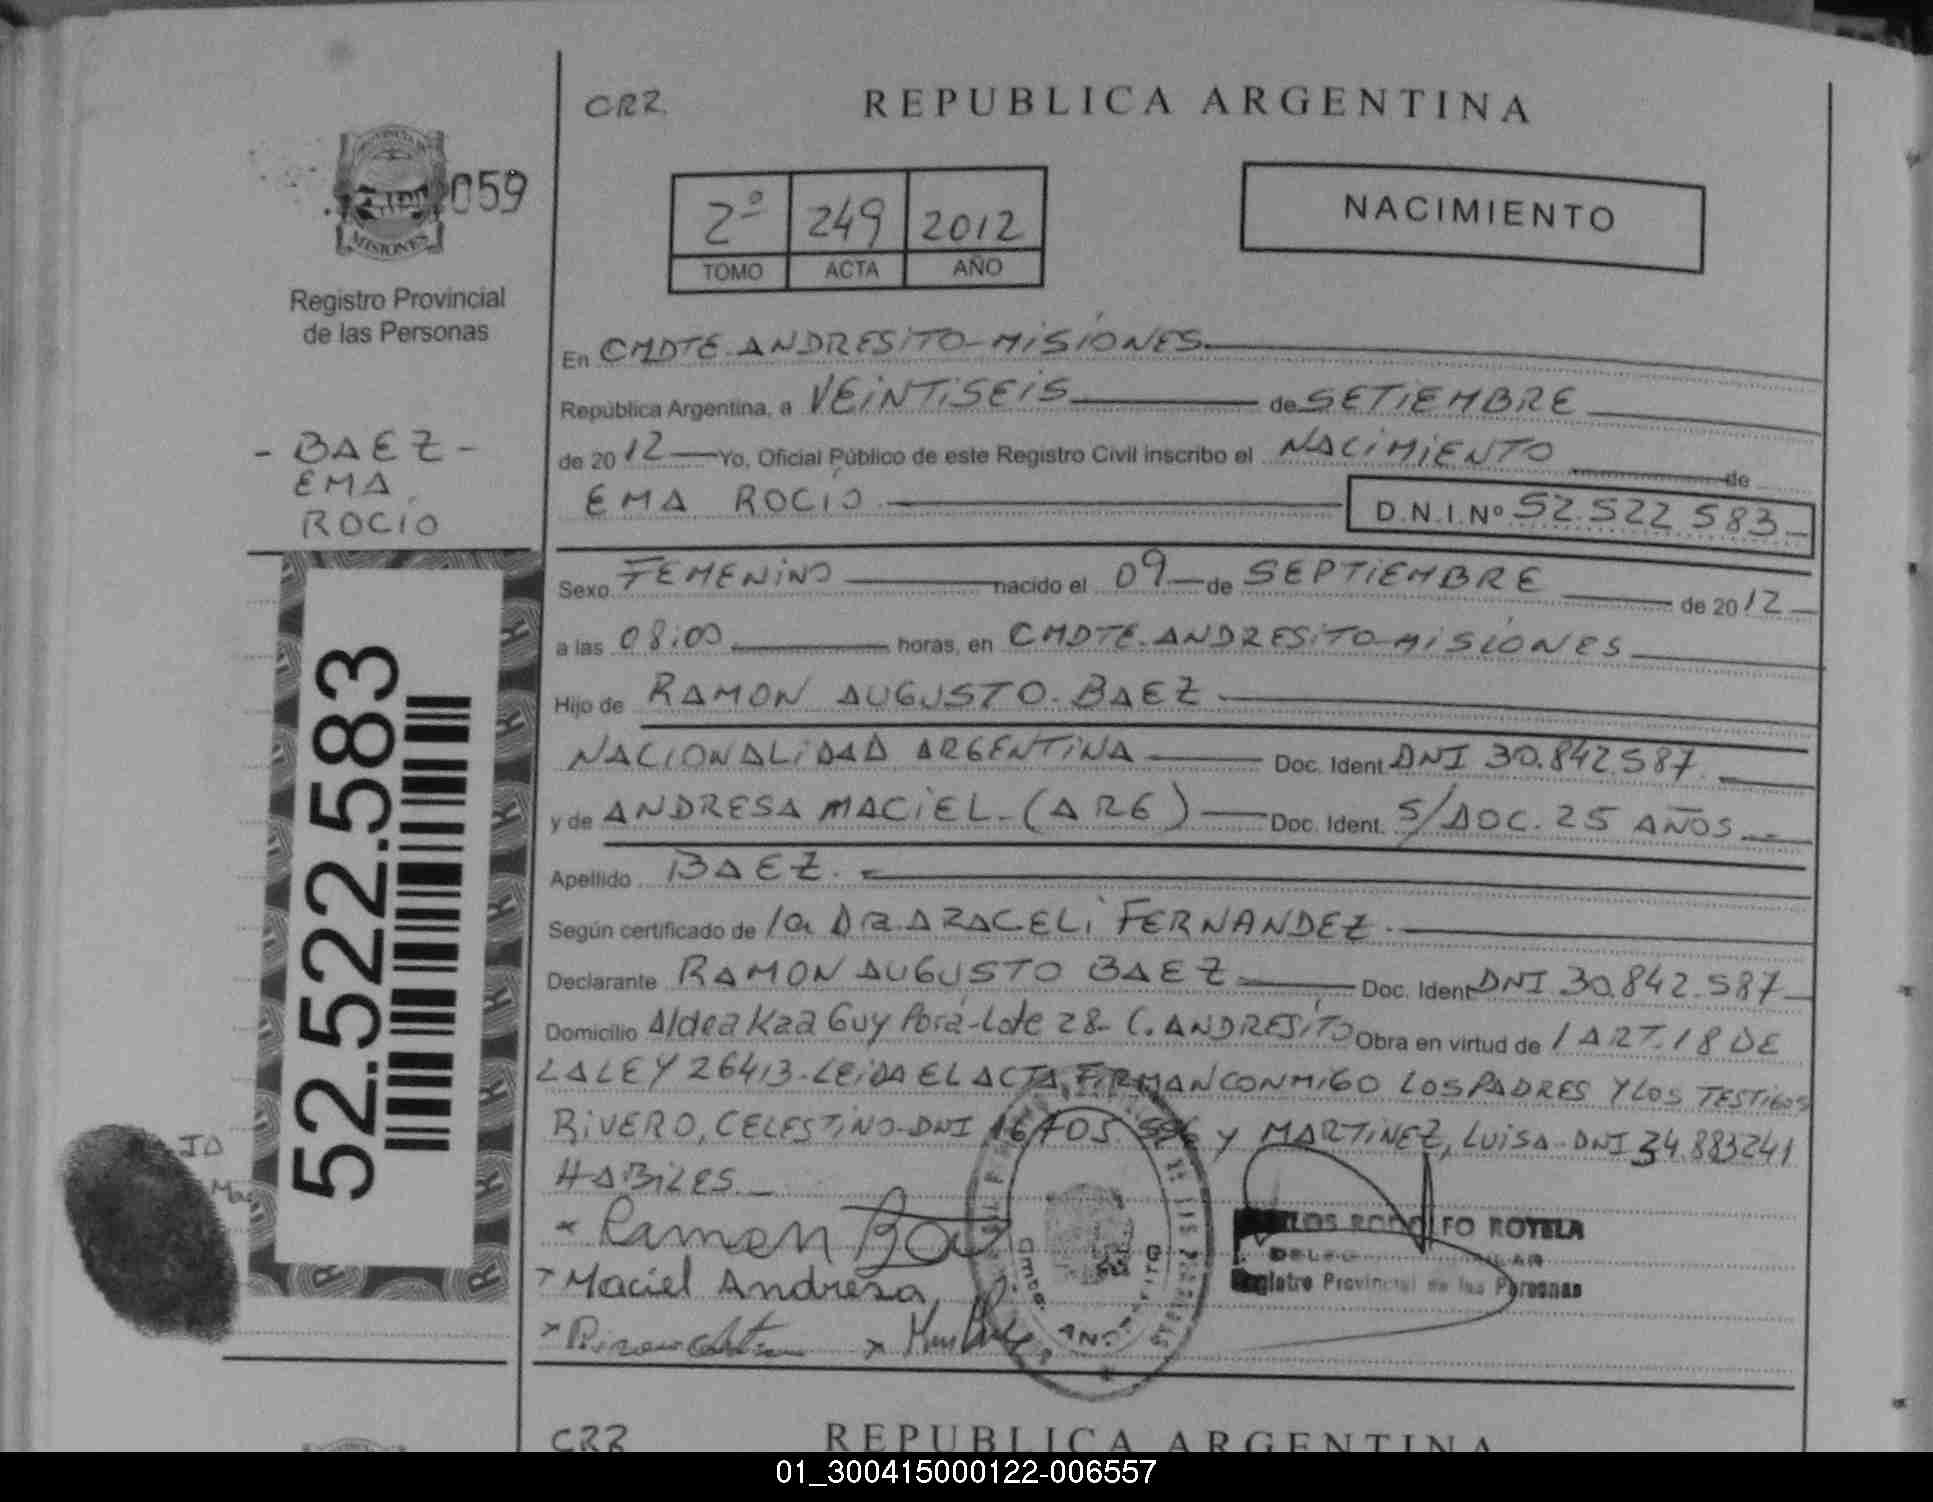 CRR
REPUBLICA ARGENTINA
059
MISIONES
Registro Provincial
de las Personas
2º 249 2012
TOMO ACTA AÑO
NACIMIENTO
- BAEZ -
EMA
ROCIO
52.522.583
En CMDTE. ANDRESITO-MISIONES
República Argentina, a VEINTISEIS de SETIEMBRE
de 2012 Yo, Oficial Público de este Registro Civil inscribo el NACIMIENTO de
EMA ROCIO D.N.I.Nº 52.522 583
Sexo FEMENINO nacido el 09 de SEPTIEMBRE de 2012
a las 08:00 horas, en CMDTE. ANDRESITO-MISIONES
Hijo de RAMON AUGUSTO. BAEZ
NACIONALIDAD ARGENTINA Doc. Ident. DNI 30.842.587.
y de ANDRESA MACIEL.(ARG) Doc. Ident. S/DOC. 25 AÑOS
Apellido BAEZ.
Según certificado de la Dra. ARACELI FERNANDEZ.
Declarante RAMON AUGUSTO BAEZ Doc. Ident DNI 30.842.587
Domicilio Aldea Kaa Guy Porá-Lote 28- C. ANDRESITO Obra en virtud de / ART. 18 DE
LA LEY 26413-LEIDA EL ACTA, FIRMAN CONMIGO LOS PADRES Y LOS TESTIGOS
RIVERO, CELESTINO-DNI 16705 Y MARTINEZ, LUISA-DNI 34.883241
HABILES
Ramon
Maciel Andresa
RODOLFO ROTELA
Registro Provincial de las Personas
CRR
REPUBLICA ARGENTINA
01_300415000122-006557